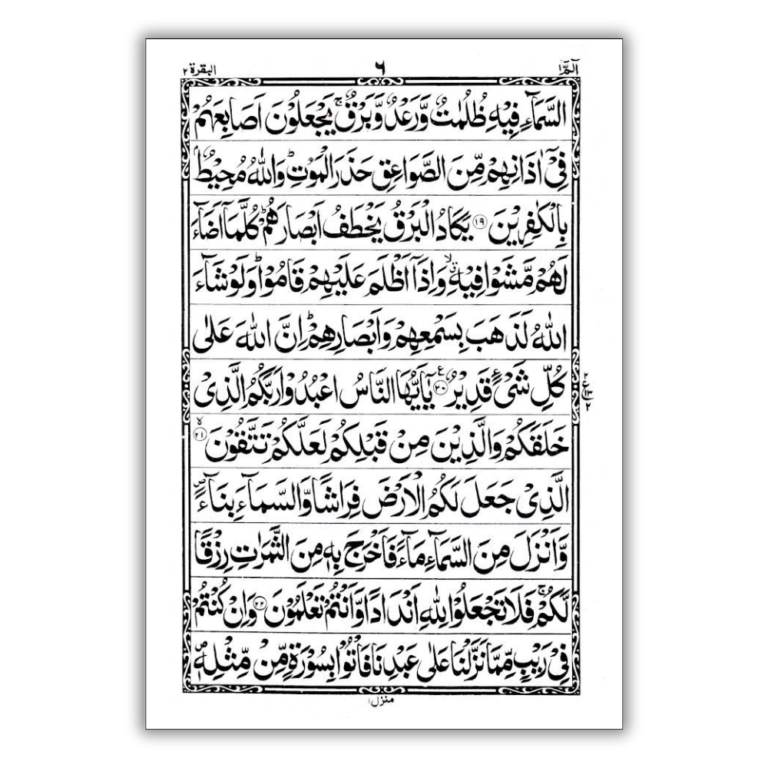 الٓمّٓ ۱ ٦ البقرة ۲
السَّمَآءِ فِيْهِ ظُلُمٰتٌ وَّرَعْدٌ وَّبَرْقٌ ۚ يَجْعَلُوْنَ اَصَابِعَهُمْ
فِيْٓ اٰذَانِهِمْ مِّنَ الصَّوَاعِقِ حَذَرَ الْمَوْتِ ؕ وَاللّٰهُ مُحِيْطٌۢ
بِالْكٰفِرِيْنَ ۱۹ يَكَادُ الْبَرْقُ يَخْطَفُ اَبْصَارَهُمْ ؕ كُلَّمَآ اَضَآءَ
لَهُمْ مَّشَوْا فِيْهِ ۙ وَاِذَآ اَظْلَمَ عَلَيْهِمْ قَامُوْا ؕ وَلَوْ شَآءَ
اللّٰهُ لَذَهَبَ بِسَمْعِهِمْ وَاَبْصَارِهِمْ ؕ اِنَّ اللّٰهَ عَلٰى
كُلِّ شَيْءٍ قَدِيْرٌ ۲۰ ع يٰٓاَيُّهَا النَّاسُ اعْبُدُوْا رَبَّكُمُ الَّذِيْ
خَلَقَكُمْ وَالَّذِيْنَ مِنْ قَبْلِكُمْ لَعَلَّكُمْ تَتَّقُوْنَ ۲۱ ۙ
الَّذِيْ جَعَلَ لَكُمُ الْاَرْضَ فِرَاشًا وَّالسَّمَآءَ بِنَآءً ۪
وَّاَنْزَلَ مِنَ السَّمَآءِ مَآءً فَاَخْرَجَ بِهٖ مِنَ الثَّمَرٰتِ رِزْقًا
لَّكُمْ ۚ فَلَا تَجْعَلُوْا لِلّٰهِ اَنْدَادًا وَّاَنْتُمْ تَعْلَمُوْنَ ۲۲ وَاِنْ كُنْتُمْ
فِيْ رَيْبٍ مِّمَّا نَزَّلْنَا عَلٰى عَبْدِنَا فَاْتُوْا بِسُوْرَةٍ مِّنْ مِّثْلِهٖ ۪
منزل ۱